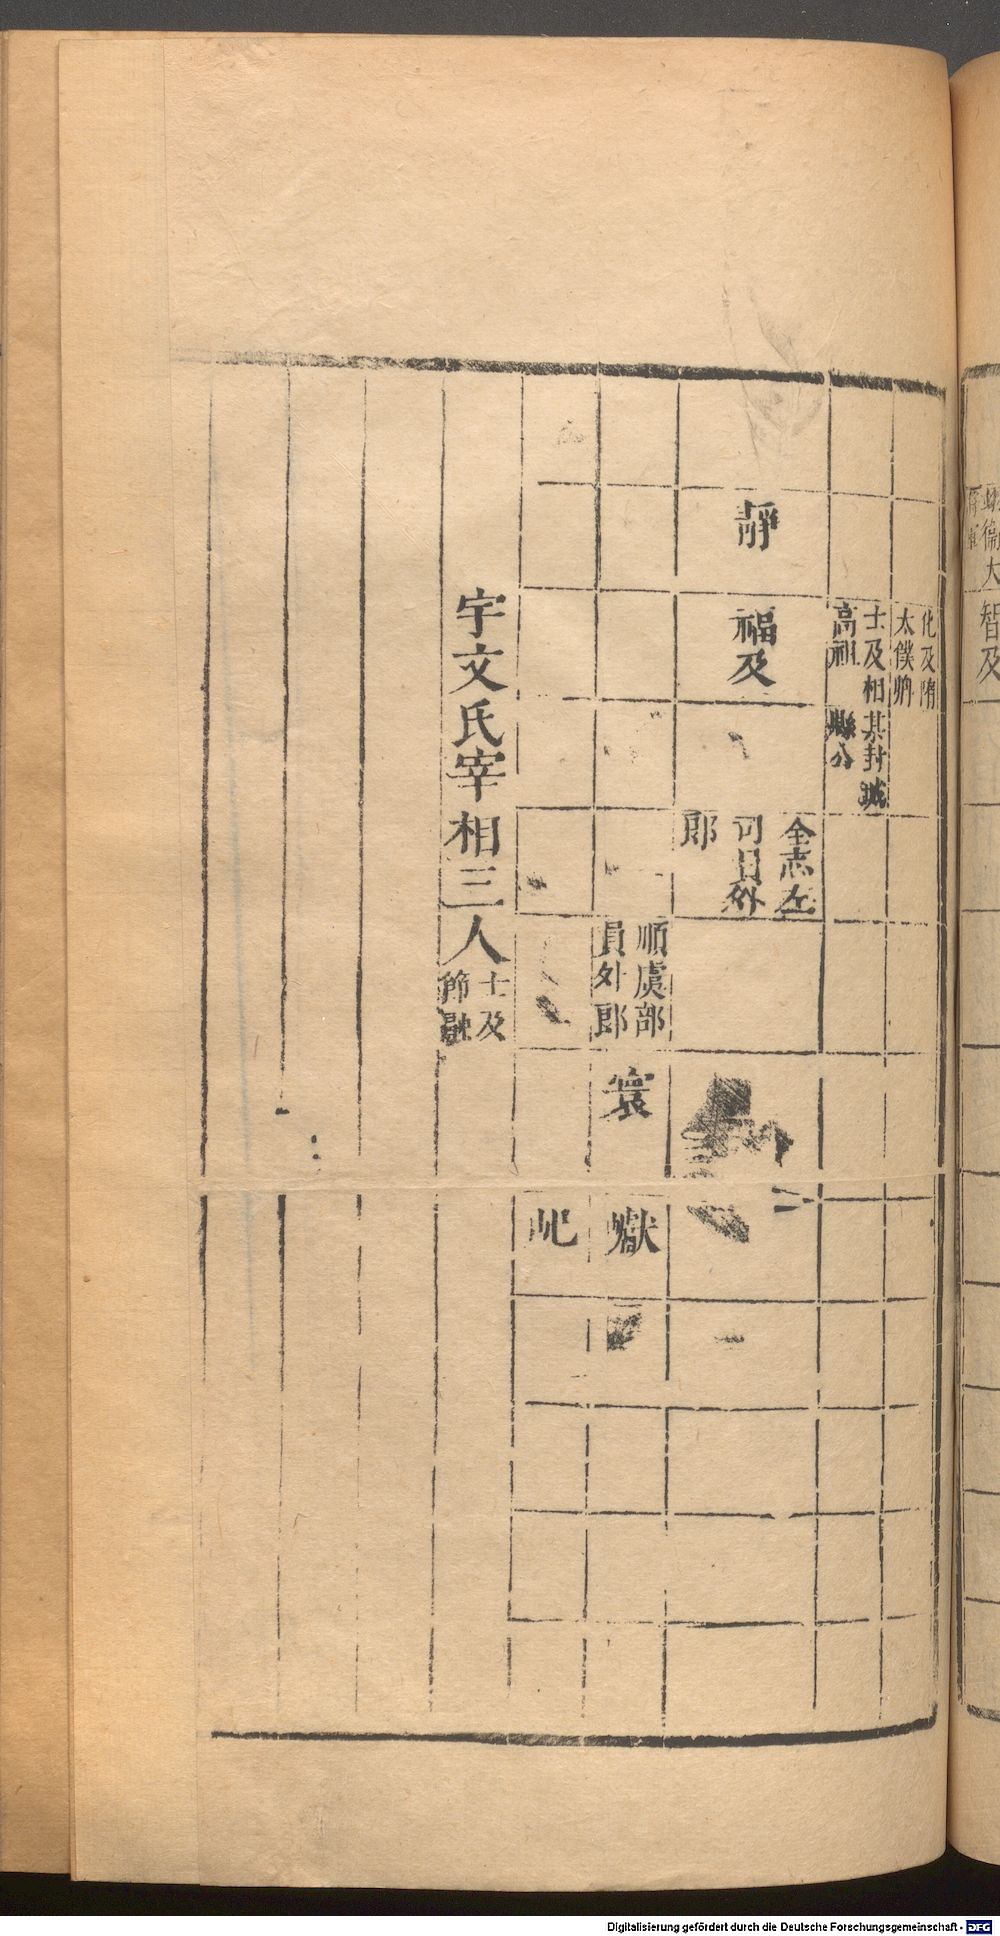 智及
化及隋
太僕卿
士及相
高祖
其封郢
縣公
靜
福及
全志左
司員外
郎
順虞部
員外郎
寰
巘
屺
宇文氏宰相三人
士及
節融
Digitalisierung gefördert durch die Deutsche Forschungsgemeinschaft - DFG